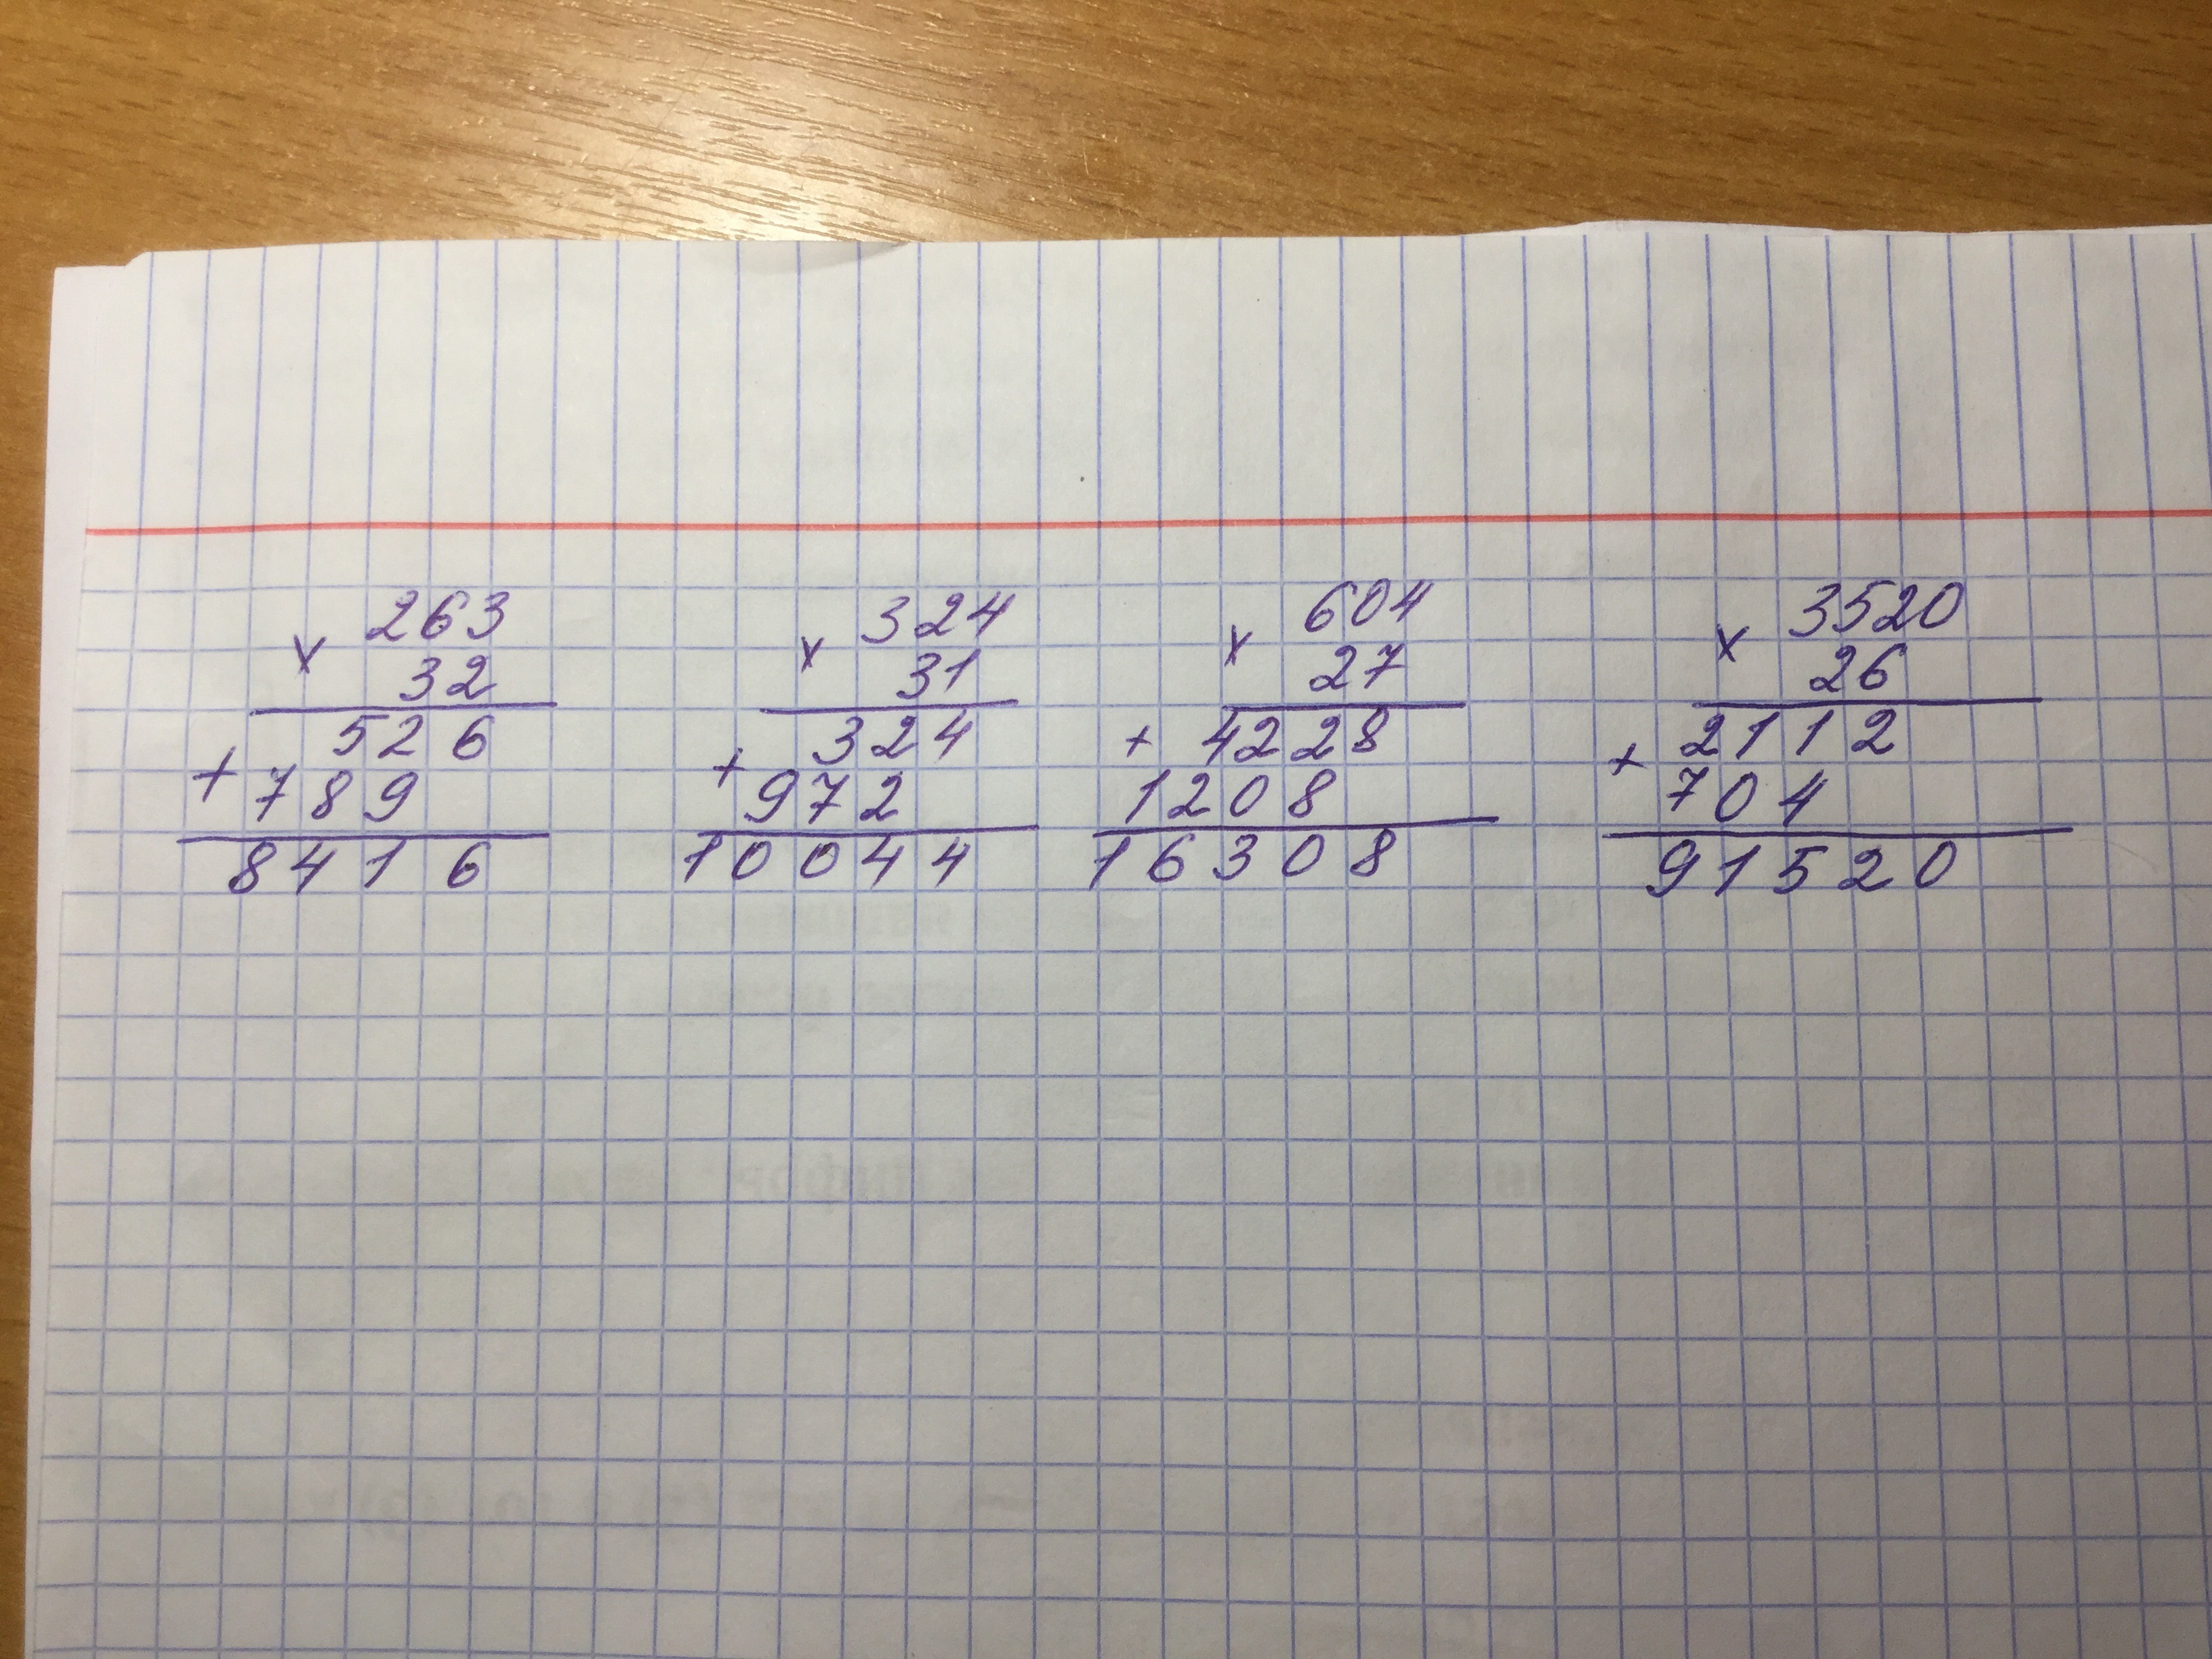 263
x
32
526
+
789
8416
324
x
31
324
+
972
10044
604
x
27
+ 4228
1208
16308
3520
x
26
2112
+
704
91520